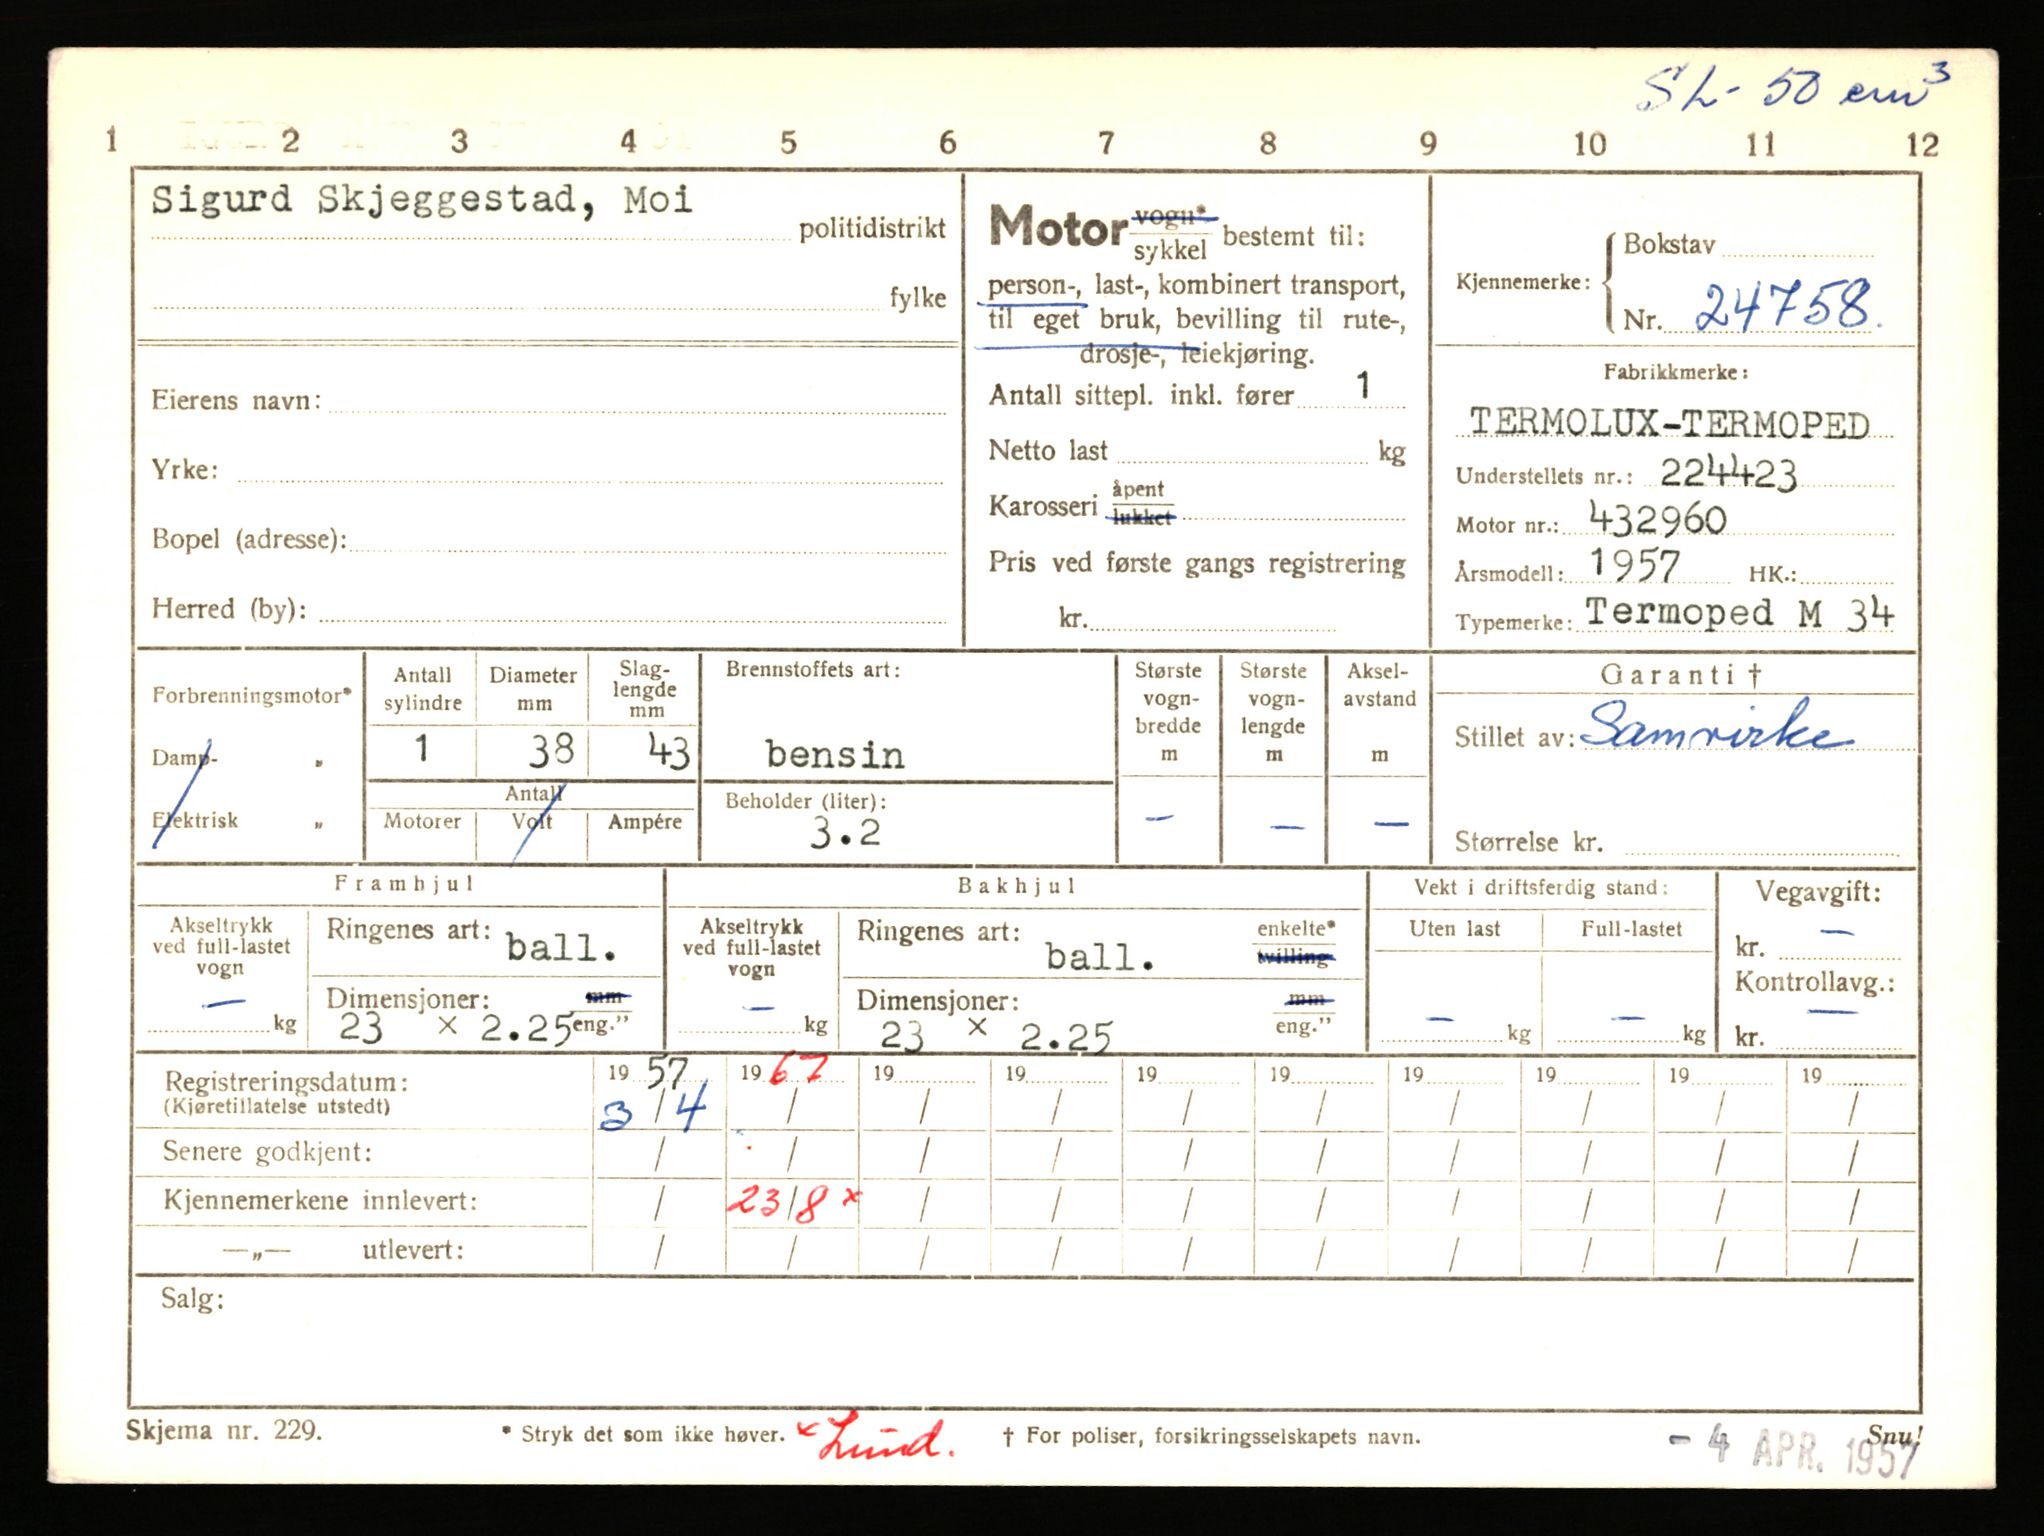 SL- 50 cm³
1 2 3 4 5 6 7 8 9 10 11 12
Sigurd Skjeggestad, Moi politidistrikt
fylke
Eierens navn:
Yrke:
Bopel (adresse):
Herred (by):
Motor vogn* sykkel bestemt til:
person-, last-, kombinert transport,
til eget bruk, bevilling til rute-,
drosje-, leiekjøring.
Antall sittepl. inkl. fører 1
Netto last kg
Karosseri åpent lukket
Pris ved første gangs registrering
kr.
Kjennemerke:
Bokstav
Nr. 24758.
Fabrikkmerke:
TERMOLUX-TERMOPED
Understellets nr.: 224423
Motor nr.: 432960
Årsmodell: 1957 HK.:
Typemerke: Termoped M 34
Forbrenningsmotor*
Damp- „
Elektrisk „
Antall sylindre
1
Diameter mm
38
Slag-lengde mm
43
Antall
Motorer Volt Ampére
Brennstoffets art:
bensin
Beholder (liter):
3.2
Største vogn-bredde m
—
Største vogn-lengde m
—
Aksel-avstand m
—
Garanti †
Stillet av: Samvirke
Størrelse kr.
Framhjul
Akseltrykk ved full-lastet vogn
— kg
Ringenes art: ball.
Dimensjoner: mm
23 × 2.25 eng.”
Bakhjul
Akseltrykk ved full-lastet vogn
— kg
Ringenes art: ball. enkelte* tvilling
Dimensjoner: mm
23 × 2.25 eng.”
Vekt i driftsferdig stand:
Uten last Full-lastet
— kg — kg
Vegavgift:
kr. —
Kontrollavg.:
kr. —
Registreringsdatum: 19 57 19 67 19 19 19 19 19 19 19 19
(Kjøretillatelse utstedt) 3/4 / / / / / / / / /
Senere godkjent: / / / / / / / / / /
Kjennemerkene innlevert: / 23/8 × / / / / / / / /
—„— utlevert: / / / / / / / / / /
Salg:
Skjema nr. 229. * Stryk det som ikke høver. × Lund. † For poliser, forsikringsselskapets navn. Snu!
- 4 APR. 1957